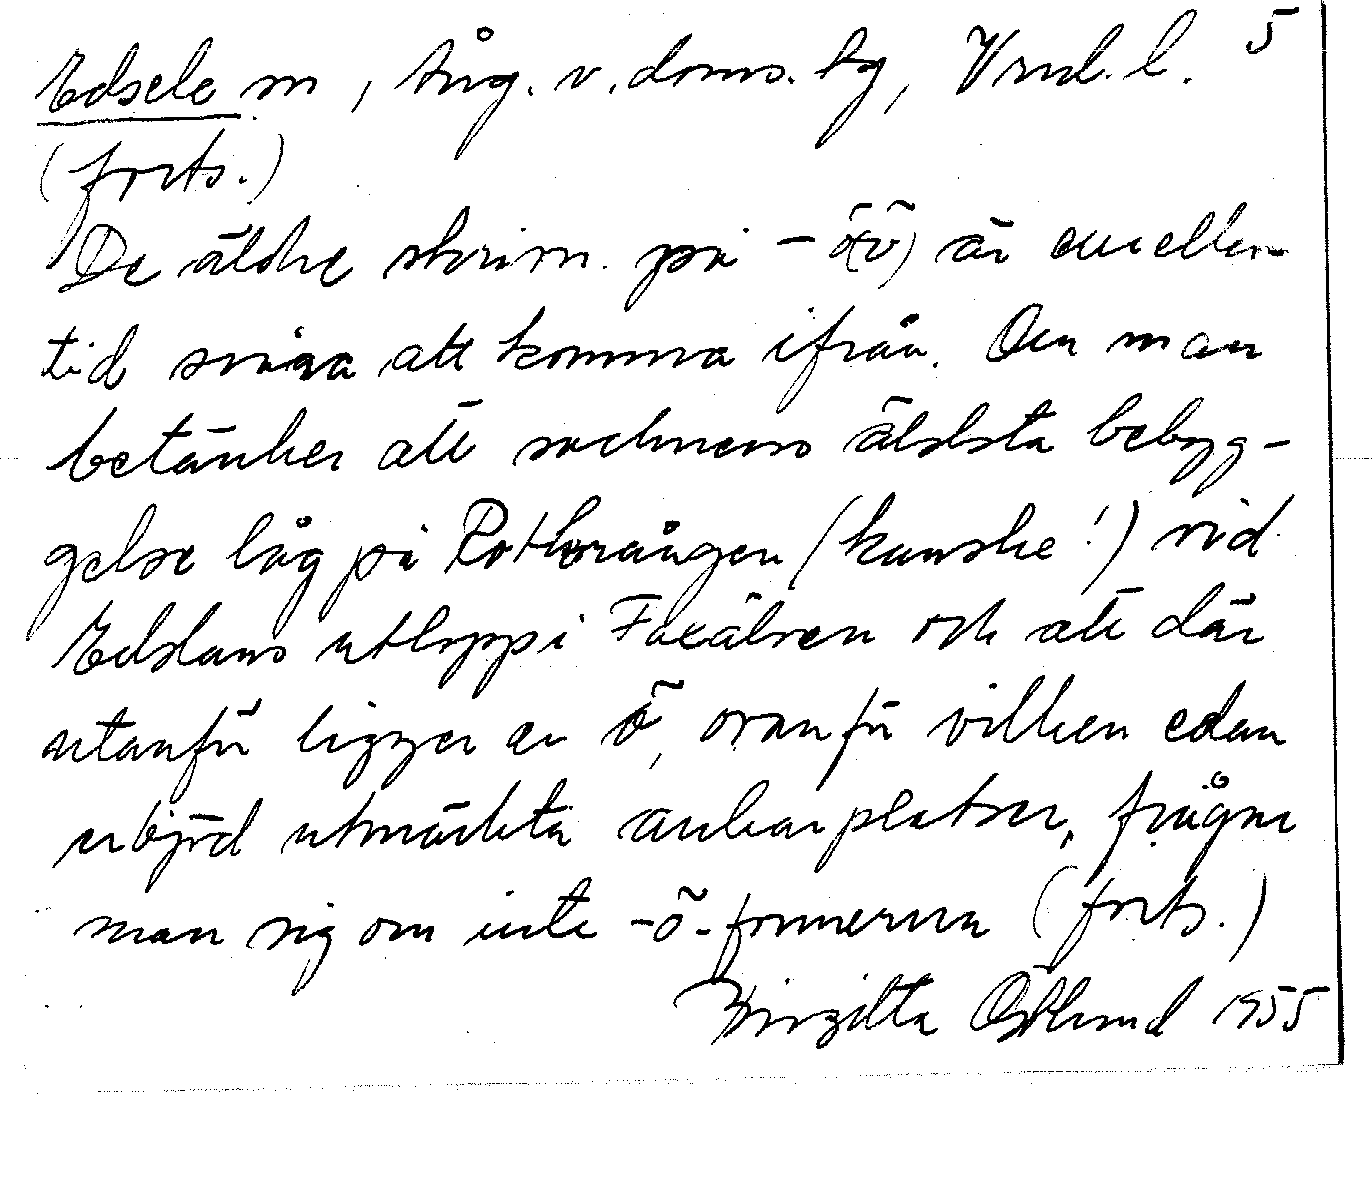 Edsele sn, Ång. v. doms. tg, Vrnl. l. 5
(forts.)
De äldre skrivn. på -ö(v) är emeller
tid svåra att komma ifrån. Om man
betänker att socknens äldsta bebyg-
gelse låg på Rotbrången (kanske!) vid
Edslans utlopp i Faxälven och att där
utanför ligger en ö, ovanför vilken edan
erbjöd utmärkta ankarplatser, frågar
man sig om inte -ö-formerna (forts.)
Birgitta Östlund 1955